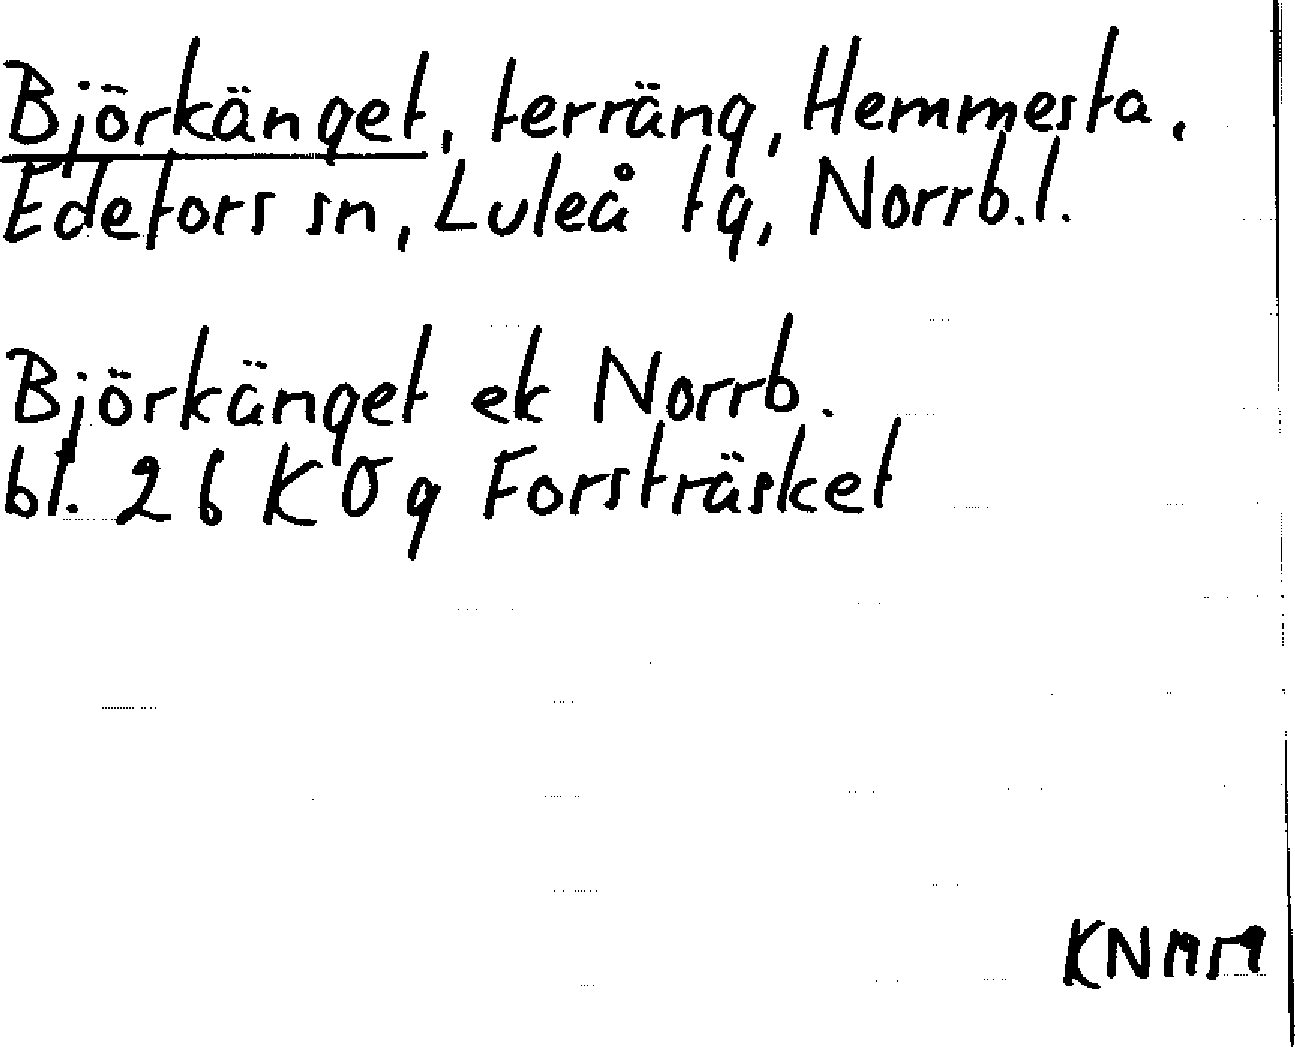 Björkänget, terräng, Hemmesta.
Edefors sn, Luleå tg, Norrb.l.
Björkänget ek Norrb.
bl. 26 K Ö g Forsträsket